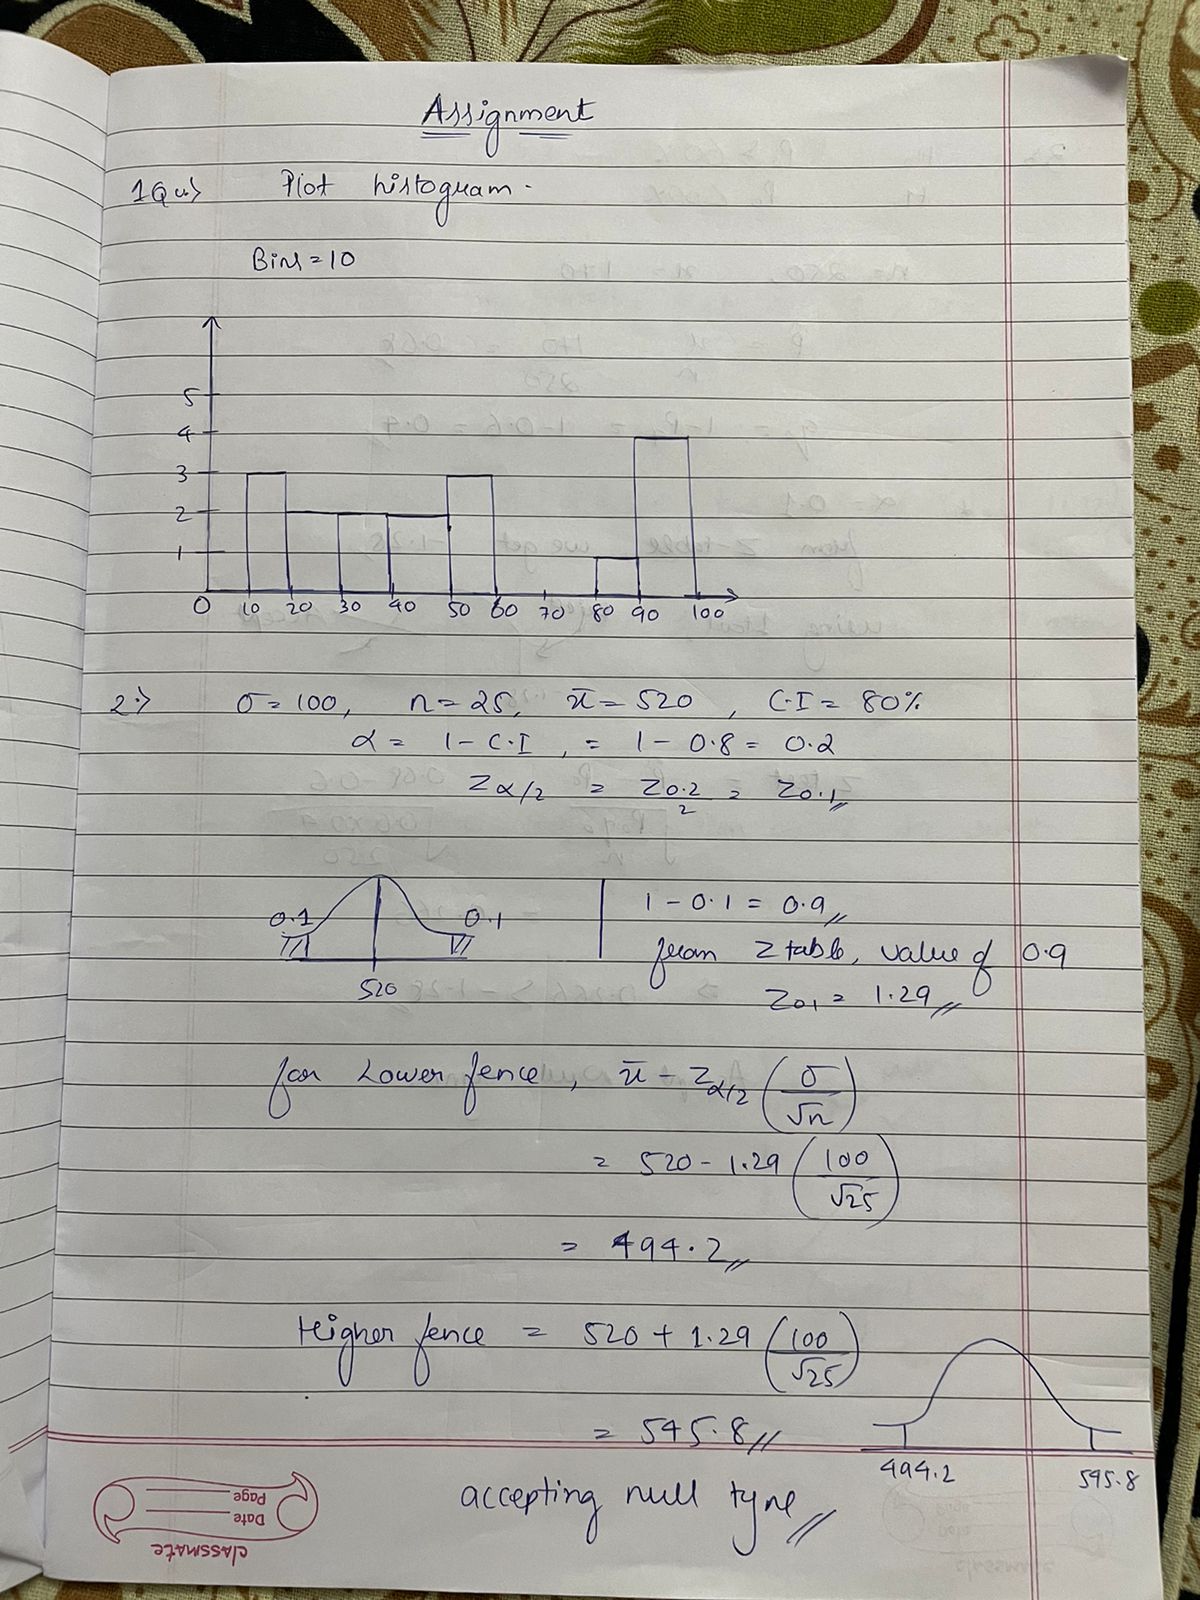 Assignment
1Qu> Plot histogram.
Bins = 10
5
4
3
2
1
0 10 20 30 40 50 60 70 80 90 100
2.> σ = 100, n = 25, x̄ = 520, C.I = 80%
α = 1 - C.I, = 1 - 0.8 = 0.2
Zα/2 = Z0.2/2 = Z0.1
0.1 0.1
520
1 - 0.1 = 0.9
from Z table, value of 0.9
Z0.1 = 1.29
for Lower fence, x̄ - Zα/2 (σ/√n)
= 520 - 1.29 (100/√25)
= 494.2
Higher fence = 520 + 1.29 (100/√25)
= 545.8
494.2 545.8
accepting null type
classmate
Date
Page